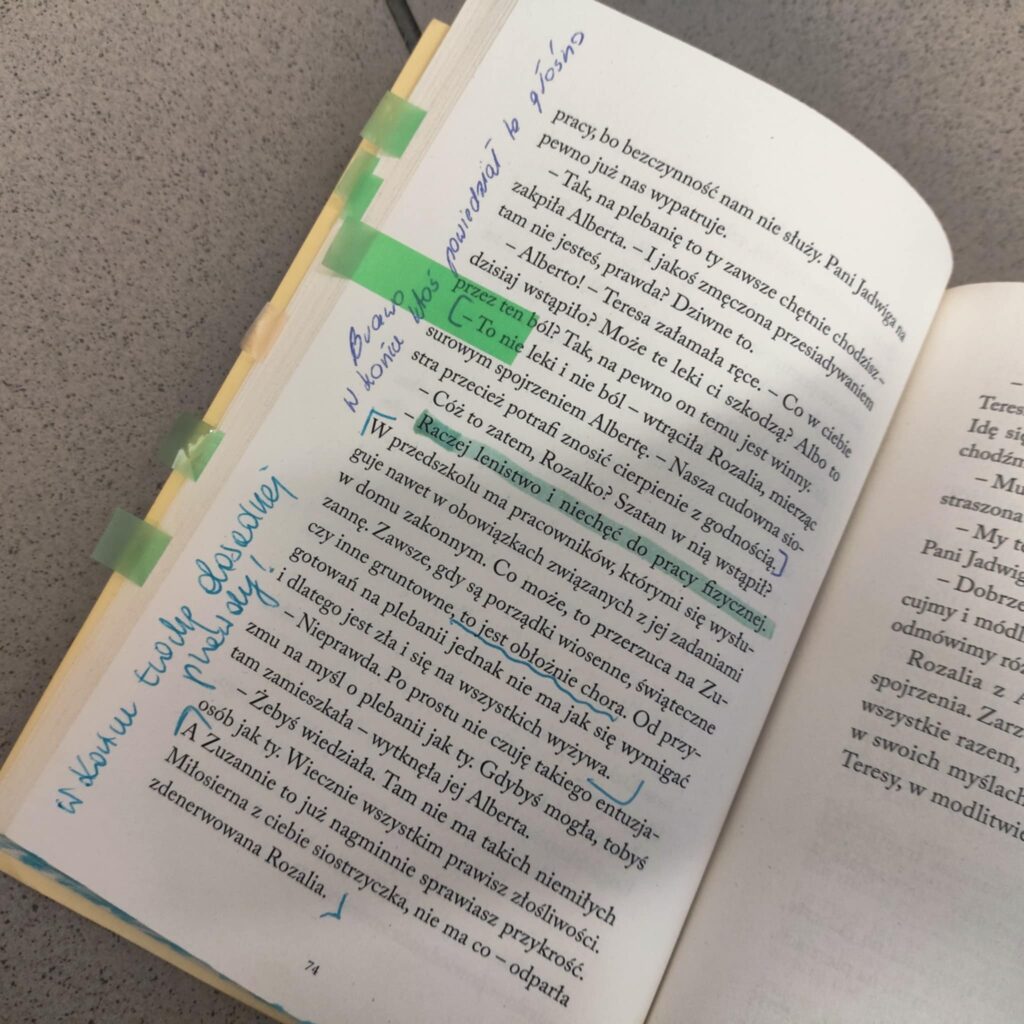 pracy, bo bezczynność nam nie służy. Pani Jadwiga na
pewno już nas wypatruje.
– Tak, na plebanię to ty zawsze chętnie chodzisz –
zakpiła Alberta. – I jakoś zmęczona przesiadywaniem
tam nie jesteś, prawda? Dziwne to.
– Alberto! – Teresa załamała ręce. – Co w ciebie
dzisiaj wstąpiło? Może te leki ci szkodzą? Albo to
przez ten ból? Tak, na pewno on temu jest winny.
– To nie leki i nie ból – wtrąciła Rozalia, mierząc
surowym spojrzeniem Albertę. – Nasza cudowna sio-
stra przecież potrafi znosić cierpienie z godnością.
– Cóż to zatem, Rozalko? Szatan w nią wstąpił?
– Raczej lenistwo i niechęć do pracy fizycznej.
W przedszkolu ma pracowników, którymi się wysłu-
guje nawet w obowiązkach związanych z jej zadaniami
w domu zakonnym. Co może, to przerzuca na Zu-
zannę. Zawsze, gdy są porządki wiosenne, świąteczne
czy inne gruntowne, to jest obłożnie chora. Od przy-
gotowań na plebanii jednak nie ma jak się wymigać
i dlatego jest zła i się na wszystkich wyżywa.
– Nieprawda. Po prostu nie czuję takiego entuzja-
zmu na myśl o plebanii jak ty. Gdybyś mogła, tobyś
tam zamieszkała – wytknęła jej Alberta.
– Żebyś wiedziała. Tam nie ma takich niemiłych
osób jak ty. Wiecznie wszystkim prawisz złośliwości.
A Zuzannie to już nagminnie sprawiasz przykrość.
Miłosierna z ciebie siostrzyczka, nie ma co – odparła
zdenerwowana Rozalia.
74
Brawo
w końcu ktoś powiedział to głośno
w końcu trochę dosadnej
prawdy!
–
Teres
Idę się
chodźn
– Mu
straszona
– My to
Pani Jadwig
– Dobrze
cujmy i módl
odmówimy ró
Rozalia z A
spojrzenia. Zarz
wszystkie razem,
w swoich myślach
Teresy, w modlitwie